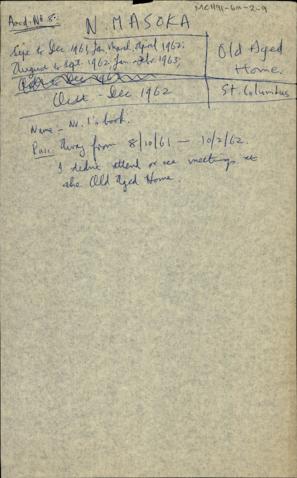 MCH91-6M-2-9
Accd. No 8:
N. MASOKA
Sept to Dec 1961, Jan, March, April 1962:
August to Sept. 1962, Jan 1963,
Old Aged Home.
Octt - Dec 1962
St. Columbus
None - No. 1's book.
Away from 8/10/61 — 10/2/62.
I didnt attend or see meetings at
the Old Aged Home.